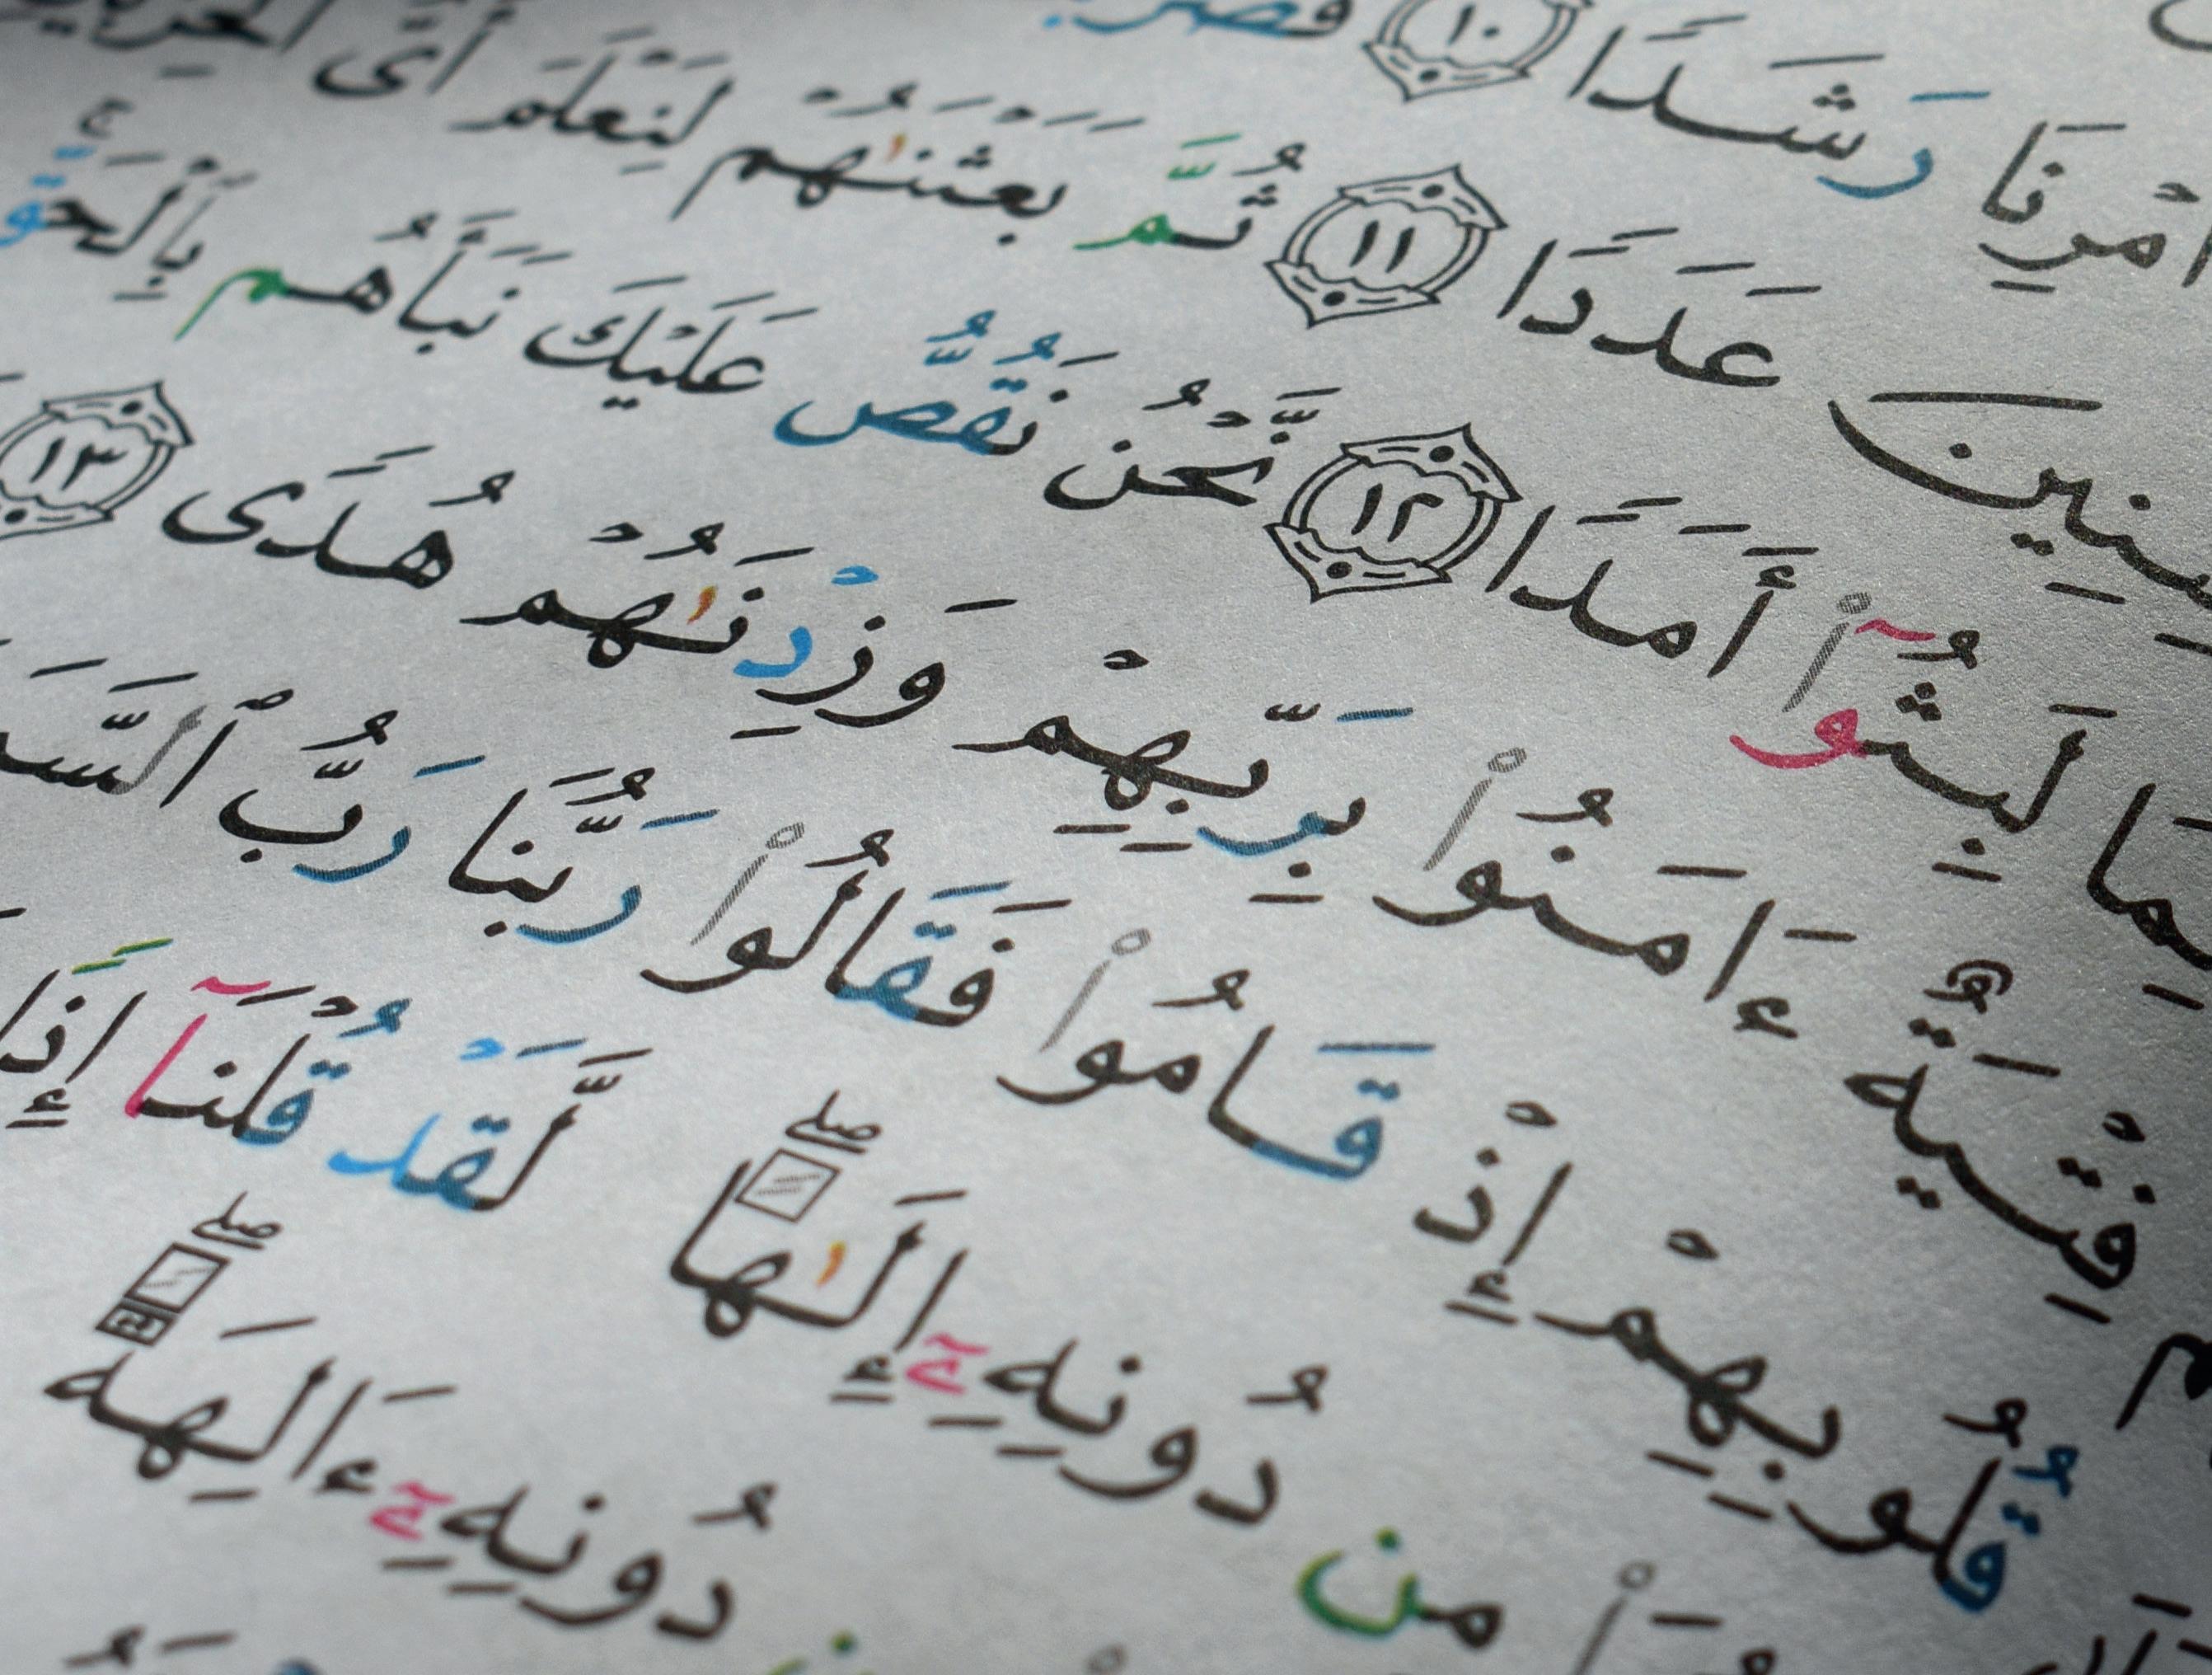 أَمْرِنَا رَشَدًا ١٠
سِنِينَ عَدَدًا ١١ ثُمَّ بَعَثْنَٰهُمْ لِنَعْلَمَ أَىُّ
لِمَا لَبِثُوٓا۟ أَمَدًا ١٢ نَّحْنُ نَقُصُّ عَلَيْكَ نَبَأَهُم بِٱلْحَقِّ ۚ
فِتْيَةٌ ءَامَنُوا۟ بِرَبِّهِمْ وَزِدْنَٰهُمْ هُدًى ١٣
قُلُوبِهِمْ إِذْ قَامُوا۟ فَقَالُوا۟ رَبُّنَا رَبُّ
مِن دُونِهِۦٓ إِلَٰهًا ۖ لَّقَدْ قُلْنَآ إِذًا
دُونِهِۦٓ ءَالِهَةً ۖ